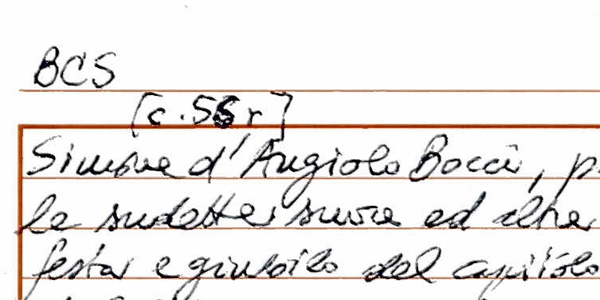 BCS
[c. 55r]
Simone d'Angiolo Bocci, p
le sudette suore ed altre
festa e giubilo del capitolo